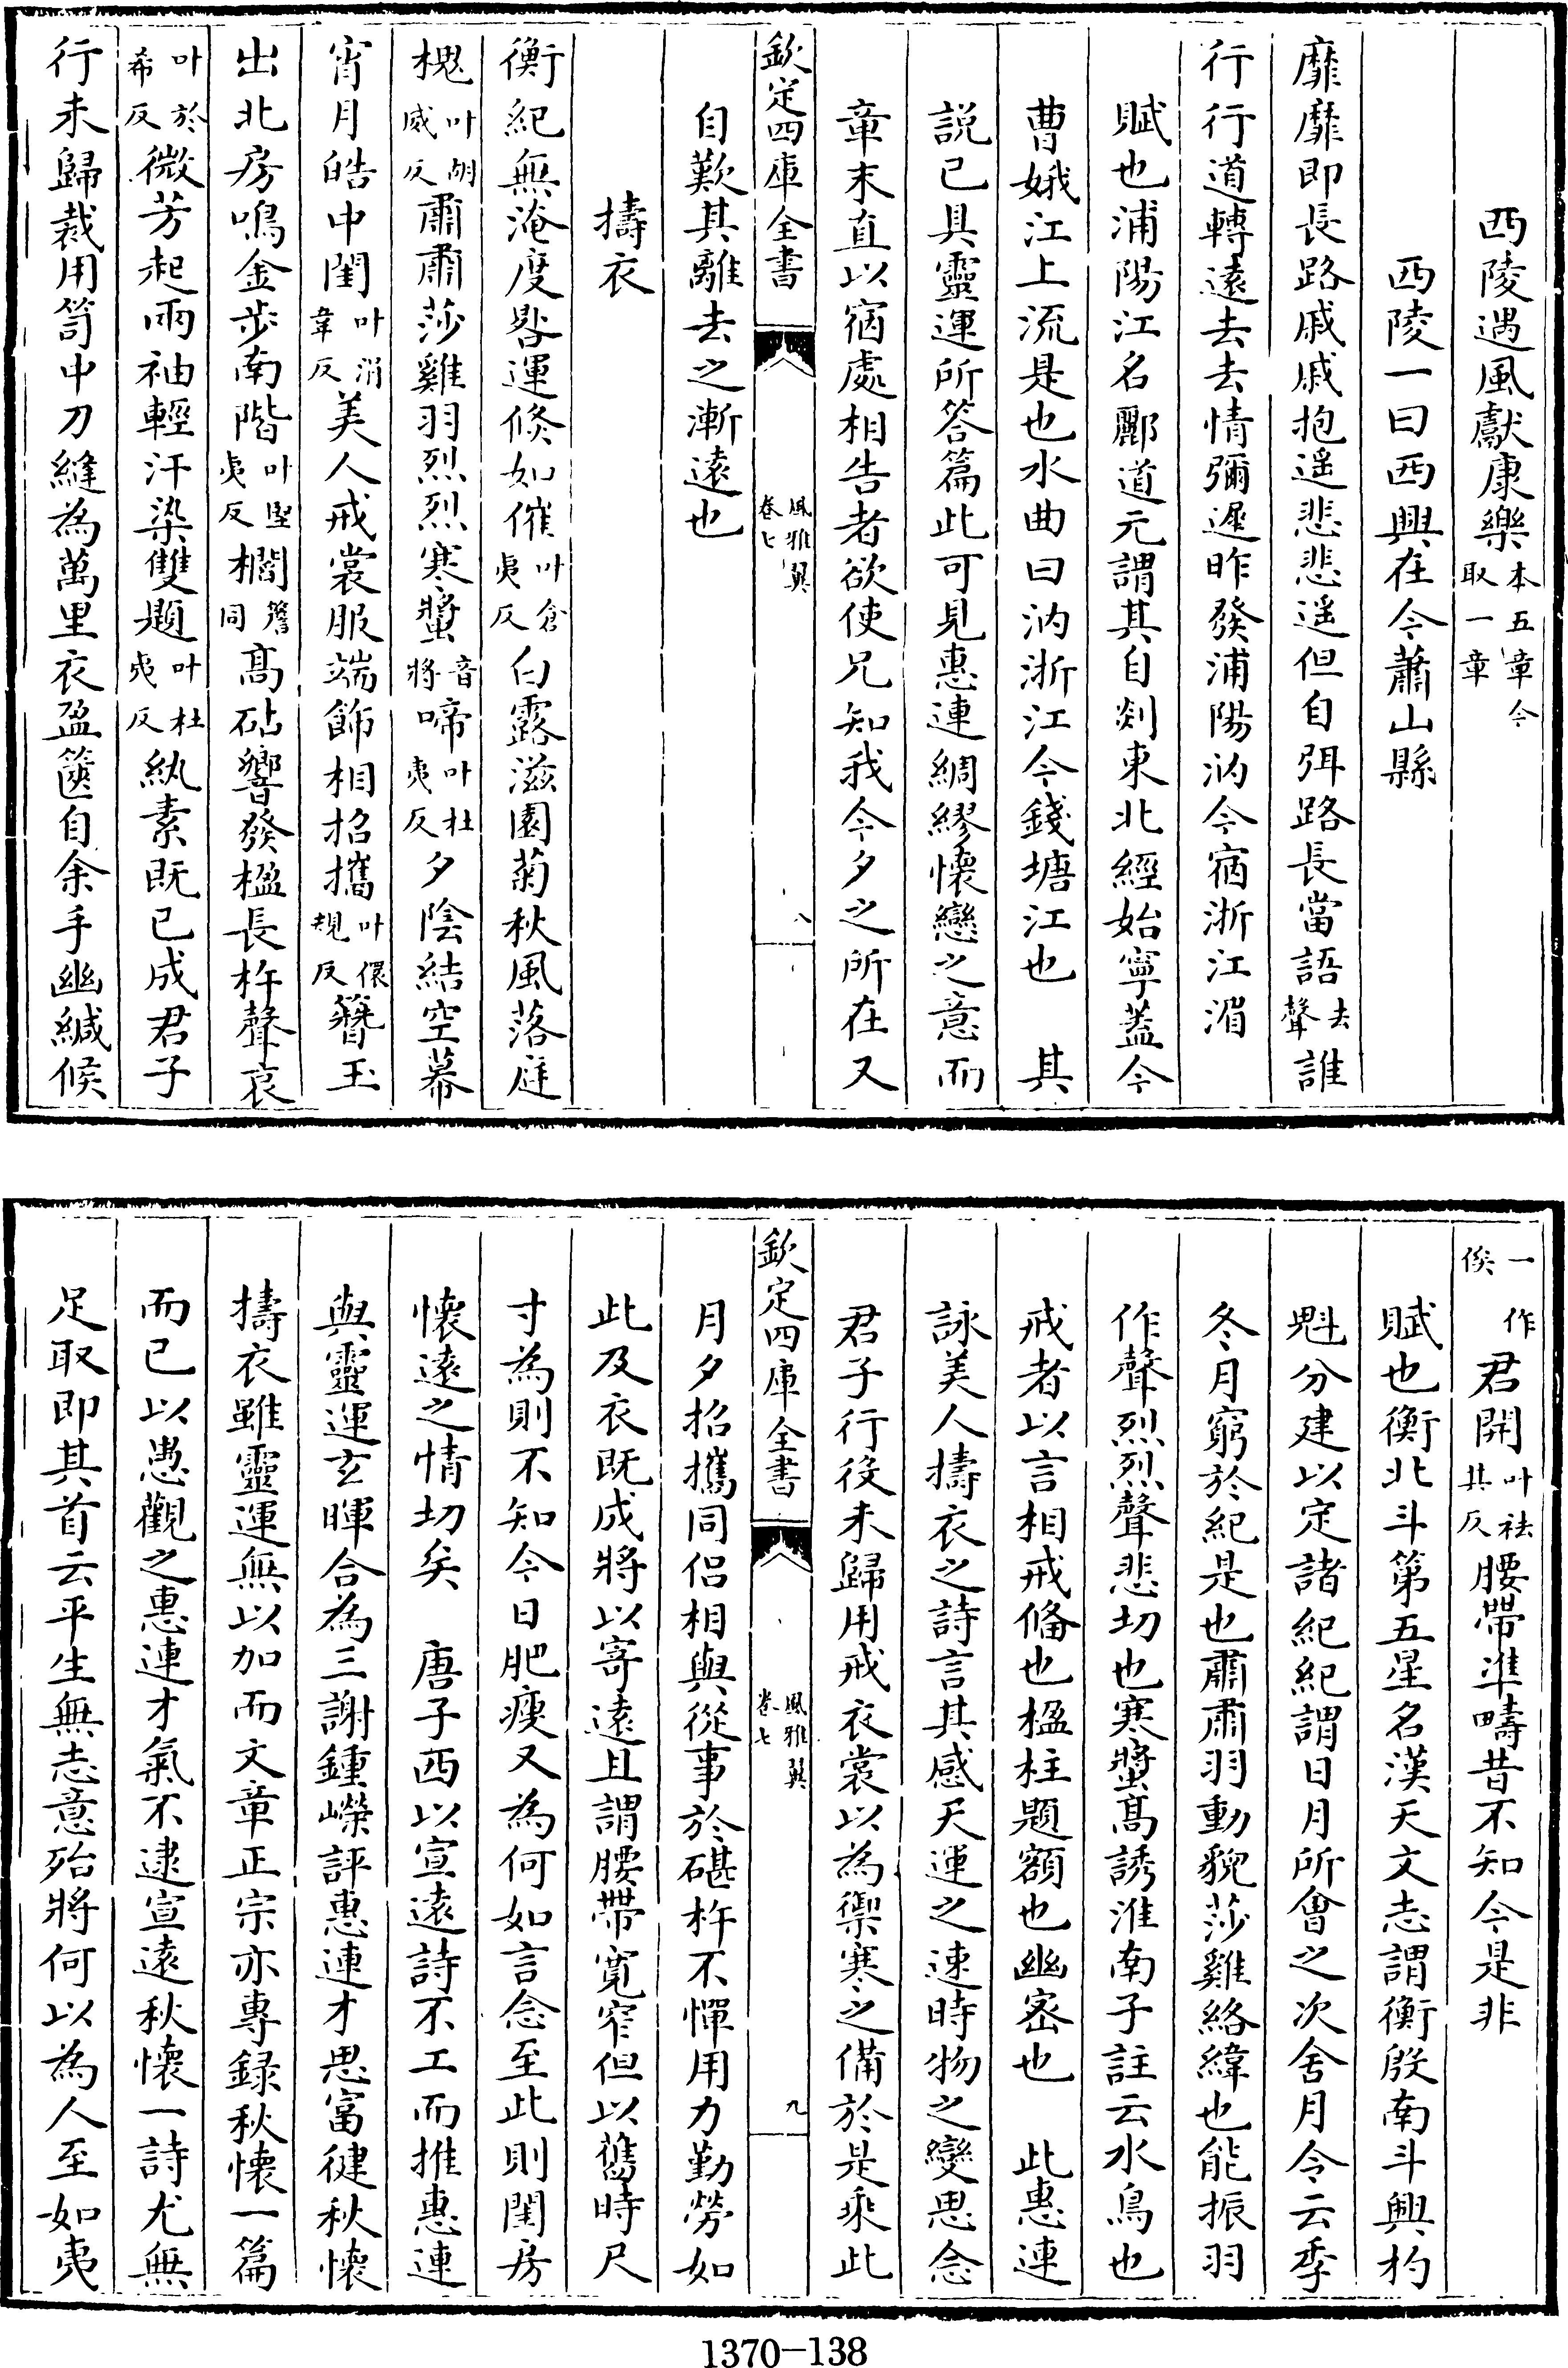 西陵遇風獻康樂本五章今取一章
西陵一曰西興在今蕭山縣
靡靡即長路戚戚抱遥悲悲遥但自弭路長當語去聲誰
行行道轉遠去去情彌遲昨發浦陽汭今宿浙江湄
賦也浦陽江名酈道元謂其自剡東北經始寧蓋今
曹娥江上流是也水曲曰汭浙江今錢塘江也　其
説已具靈運所答篇此可見惠連綢繆懷戀之意而
章末直以宿處相告者欲使兄知我今夕之所在又
欽定四庫全書　風雅翼卷七　八
自歎其離去之漸遠也
擣衣
衡紀無淹度晷運倐如催叶倉夷反白露滋園菊秋風落庭
槐叶胡威反肅肅莎雞羽烈烈寒螿音將啼叶杜夷反夕隂結空幕
宵月皓中閨叶涓韋反美人戒裳服端飾相招攜叶儇規反簪玉
出北房鳴金步南階叶堅夷反櫩簷同髙砧響發楹長杵聲哀
叶於希反微芳起兩袖輕汗染雙題叶杜夷反紈素既已成君子
行未歸裁用笥中刀縫為萬里衣盈篋自余手幽緘候
一作俟君開叶祛其反腰帶準疇昔不知今是非
賦也衡北斗第五星名漢天文志謂衡殷南斗興杓
魁分建以定諸紀紀謂日月所會之次舍月令云季
冬月窮於紀是也肅肅羽動貌莎雞絡緯也能振羽
作聲烈烈聲悲切也寒螿髙誘淮南子註云水鳥也
戒者以言相戒偹也楹柱題額也幽宻也　此惠連
詠美人擣衣之詩言其感天運之速時物之變思念
君子行役未歸用戒衣裳以為禦寒之備於是乘此
欽定四庫全書　風雅翼卷七　九
月夕招攜同侣相與從事於碪杵不憚用力勤勞如
此及衣既成將以寄逺且謂腰帶寛窄但以舊時尺
寸為則不知今日肥瘦又為何如言念至此則閨房
懷逺之情切矣　唐子西以宣逺詩不工而推惠連
與靈運玄暉合為三謝鍾嶸評惠連才思富徤秋懷
擣衣雖靈運無以加而文章正宗亦專録秋懷一篇
而已以愚觀之惠連才氣不逮宣逺秋懷一詩尤無
足取即其首云平生無志意殆將何以為人至如夷
1370-138